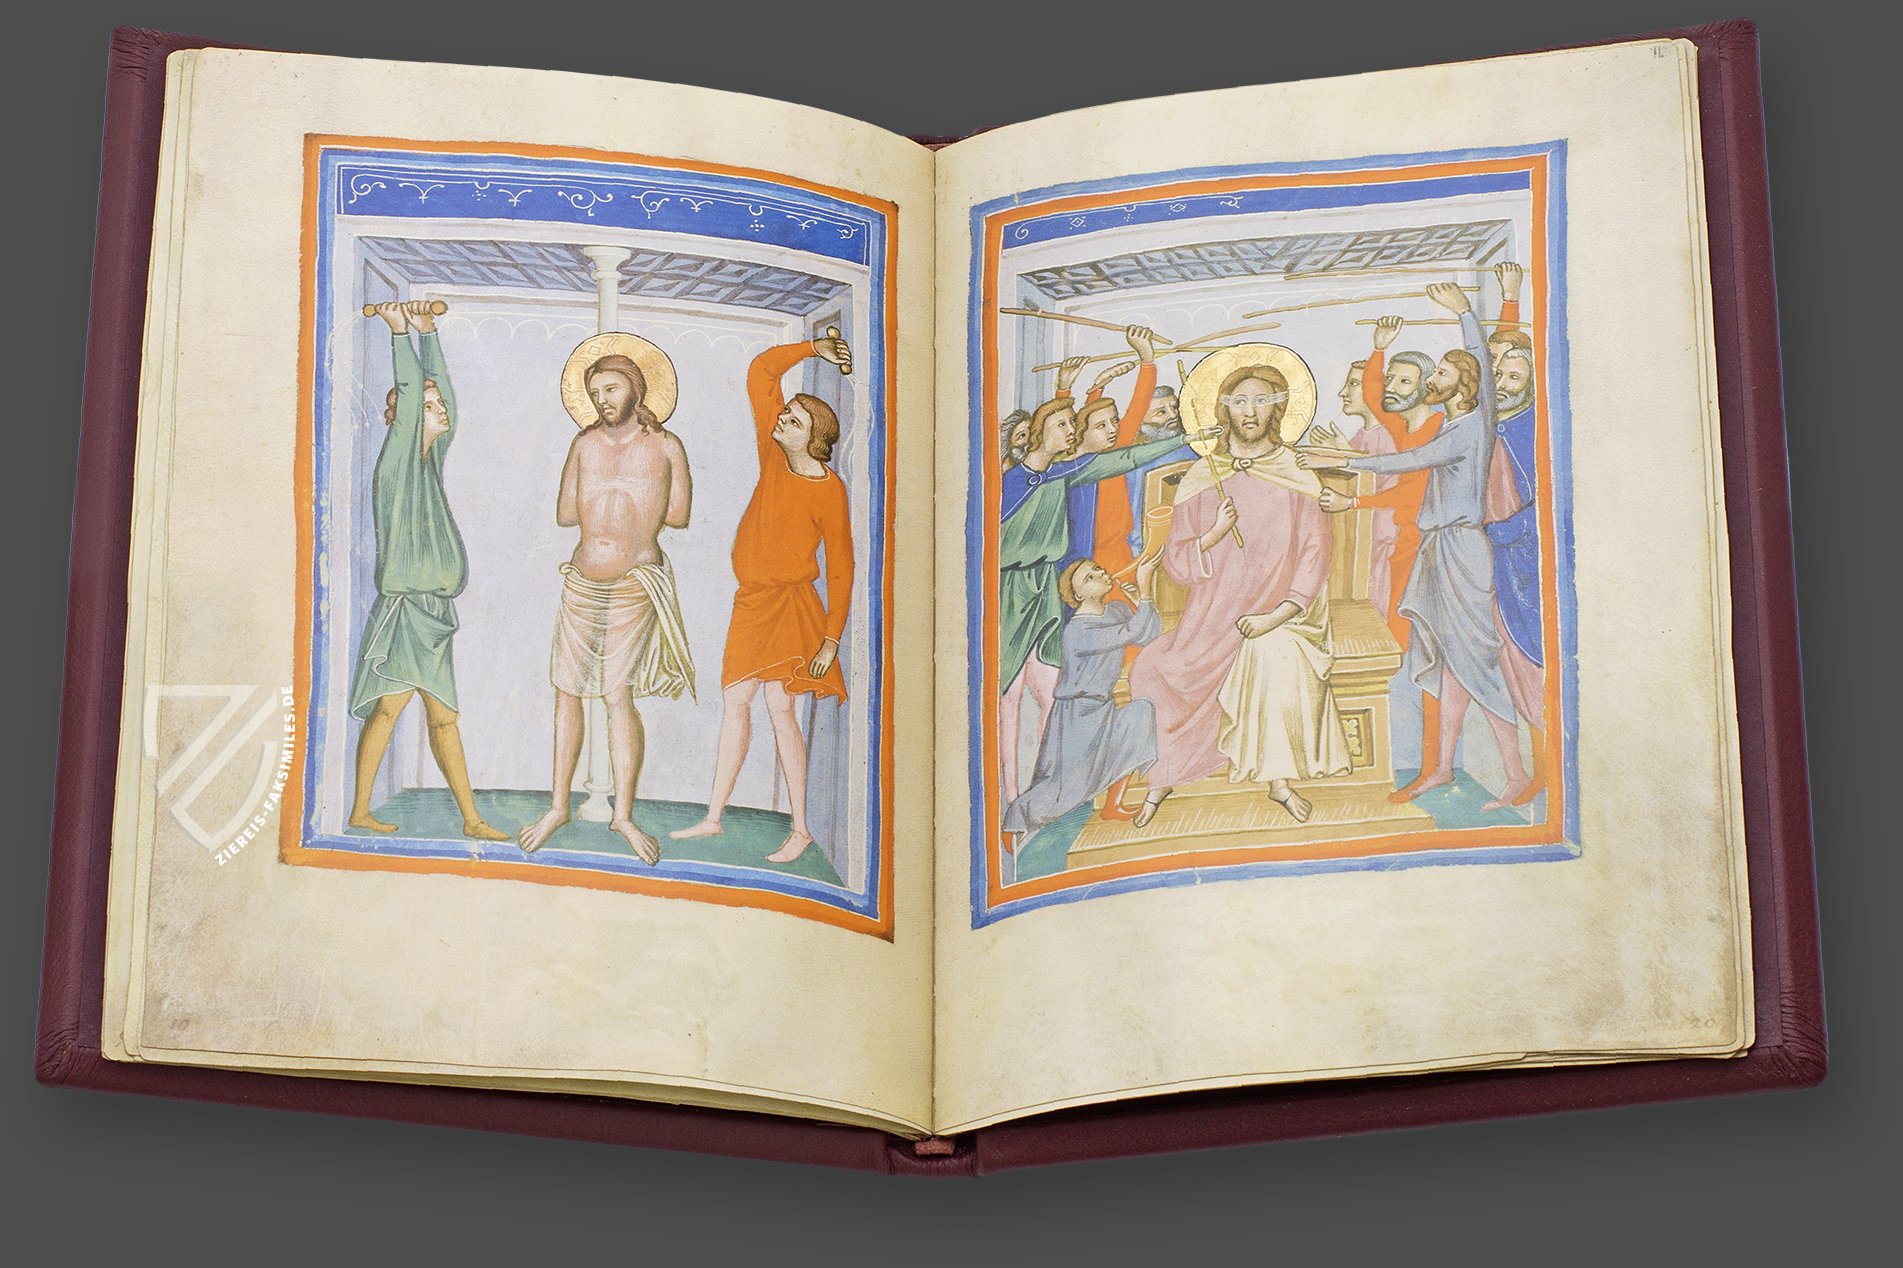 11.
10
20
ZIEREIS-FAKSIMILES.DE